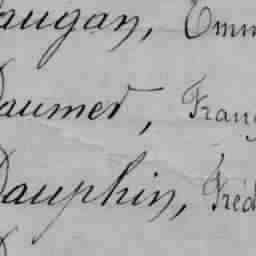 augan, Emm
Daumer, Franç
Dauphin, Fréd